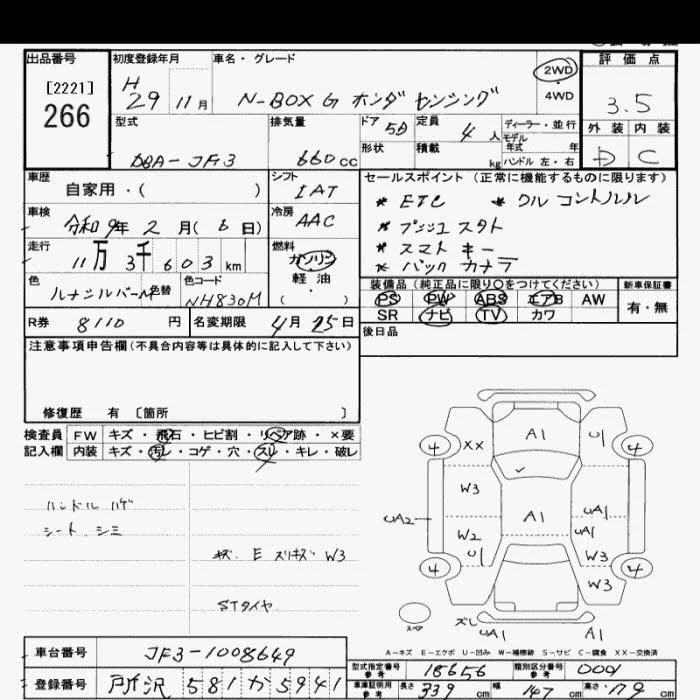 出品番号 初度登録年月 車名・グレード 2WD 評価点
[2221] H
266 29 11月 N-BOX G ホンダ センシング 4WD 3.5
型式 排気量 ドア 5D 定員 4人 ディーラー・並行 外装 内装
モデル年式 年
DBA-JF3 660cc 形状 積載 kg ハンドル 左・右 D C
車歴 シフト セールスポイント (正常に機能するものに限ります)
自家用・( ) IAT * ETC * クルコントルル
車検 令和9年2月(6日) 冷房 AAC * プッシュスタト
走行 燃料 * スマトキー
11万3千603km ガソリン * バックカメラ
色 色替 色コード 軽油 装備品 (純正品に限り○をつけてください) 新車保証書
NH830M ( ・ ) PS PW ABS エアB AW 有・無
R券 8110円 名変期限 4月25日 SR ナビ TV カワ
注意事項申告欄(不具合内容等は具体的に記入して下さい) 後日品
修復歴 有 [箇所 ]
検査員 FW キズ・飛石・ヒビ割・リペア跡・×要
記入欄 内装 キズ・汚レ・コゲ・穴・スレ・キレ・破レ
A1 U1
4 XX 4
W3
ハンドル ハゲ
シート シミ UA2 A1 UA1
W2 UA1
キズ E スリキズ W3 U1 W3
4 4
W3
STタイヤ
スペア ズレ
UA1 A1
A-キズ E-エクボ U-凹み W-補修跡 S-サビ C-腐食 XX-交換済
車台番号 JF3-1008649
型式指定番号 参考 18656 類別区分番号 参考 0001
登録番号 所沢 581 か 5941
車庫証明用 参考 長さ 339cm 幅 147cm 高さ 179cm